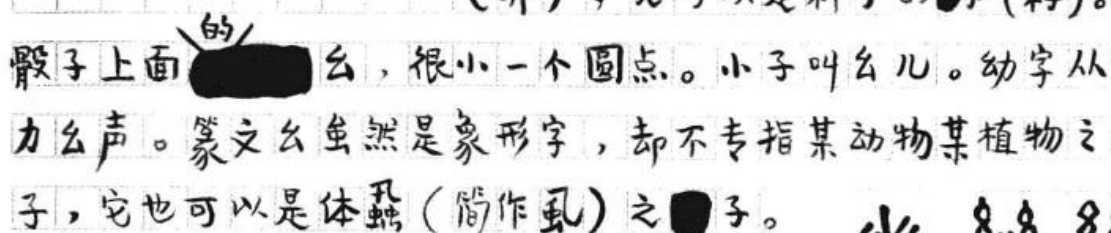 骰子上面的幺，很小一个圆点。小子叫幺儿。幼字从
力幺声。篆文幺虽然是象形字，却不专指某动物某植物之
子，它也可以是体蝨（简作虱）之子。